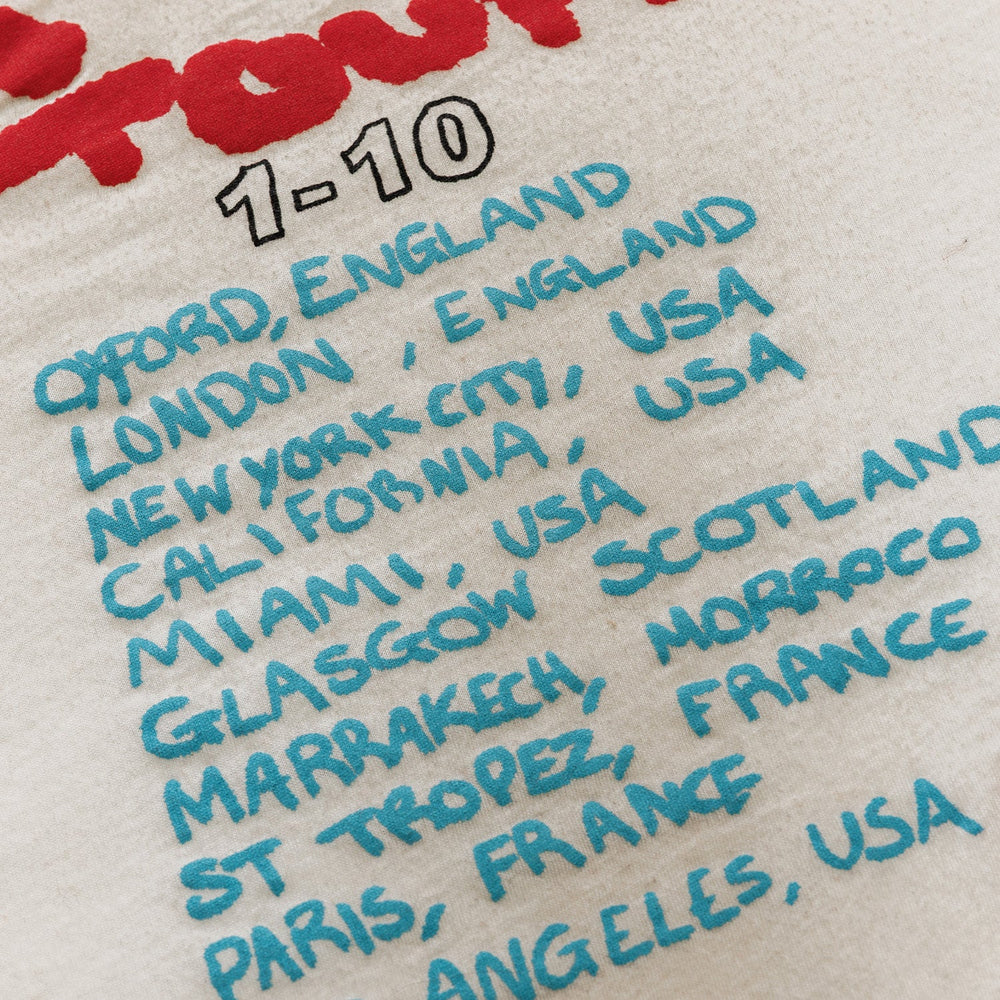 TOUR
1-10
OXFORD, ENGLAND
LONDON, ENGLAND
NEW YORK CITY, USA
CALIFORNIA, USA
MIAMI, USA
GLASGOW SCOTLAND
MARRAKECH, MORROCO
ST TROPEZ, FRANCE
PARIS, FRANCE
ANGELES, USA